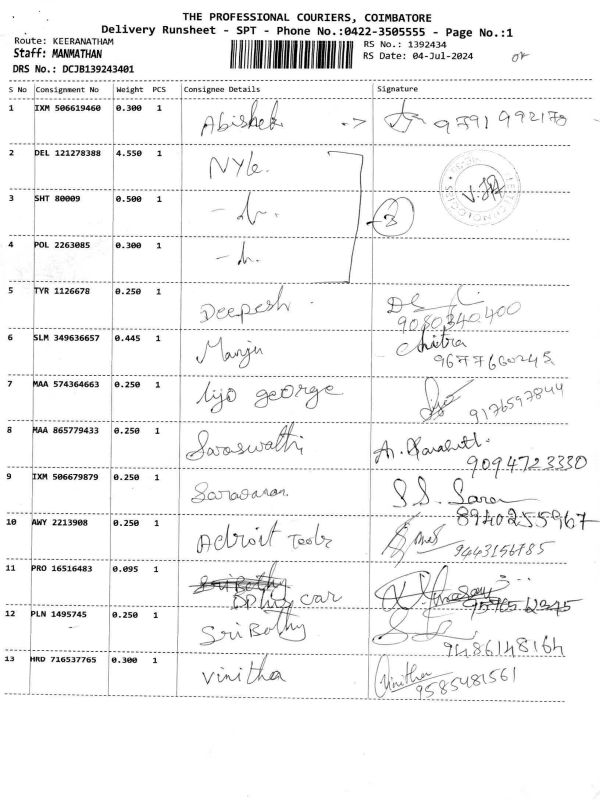 THE PROFESSIONAL COURIERS, COIMBATORE
Delivery Runsheet - SPT - Phone No.:0422-3505555 - Page No.:1
Route: KEERANATHAM RS No.: 1392434
Staff: MANMATHAN RS Date: 04-Jul-2024
DRS No.: DCJB139243401
S No Consignment No Weight PCS Consignee Details Signature
1 IXM 506619460 0.300 1 Abishek -> 9791992178
2 DEL 121278388 4.550 1 NYle.
3 SHT 80009 0.500 1
4 POL 2263085 0.300 1
5 TYR 1126678 0.250 1 Deepesh
9080340400
6 SLM 349636657 0.445 1 Manju Chitra
9677660245
7 MAA 574364663 0.250 1 lijo george 9176597844
8 MAA 865779433 0.250 1 Saraswathi
9094723330
9 IXM 506679879 0.250 1 Saravanan S.S. Saran
8940255967
10 AWY 2213908 0.250 1 Adroit Tools
9443156785
11 PRO 16516483 0.095 1 car
12 PLN 1495745 0.250 1 Sri Bothy
9486148164
13 HRD 716537765 0.300 1 Vinitha Vinitha
9585481561